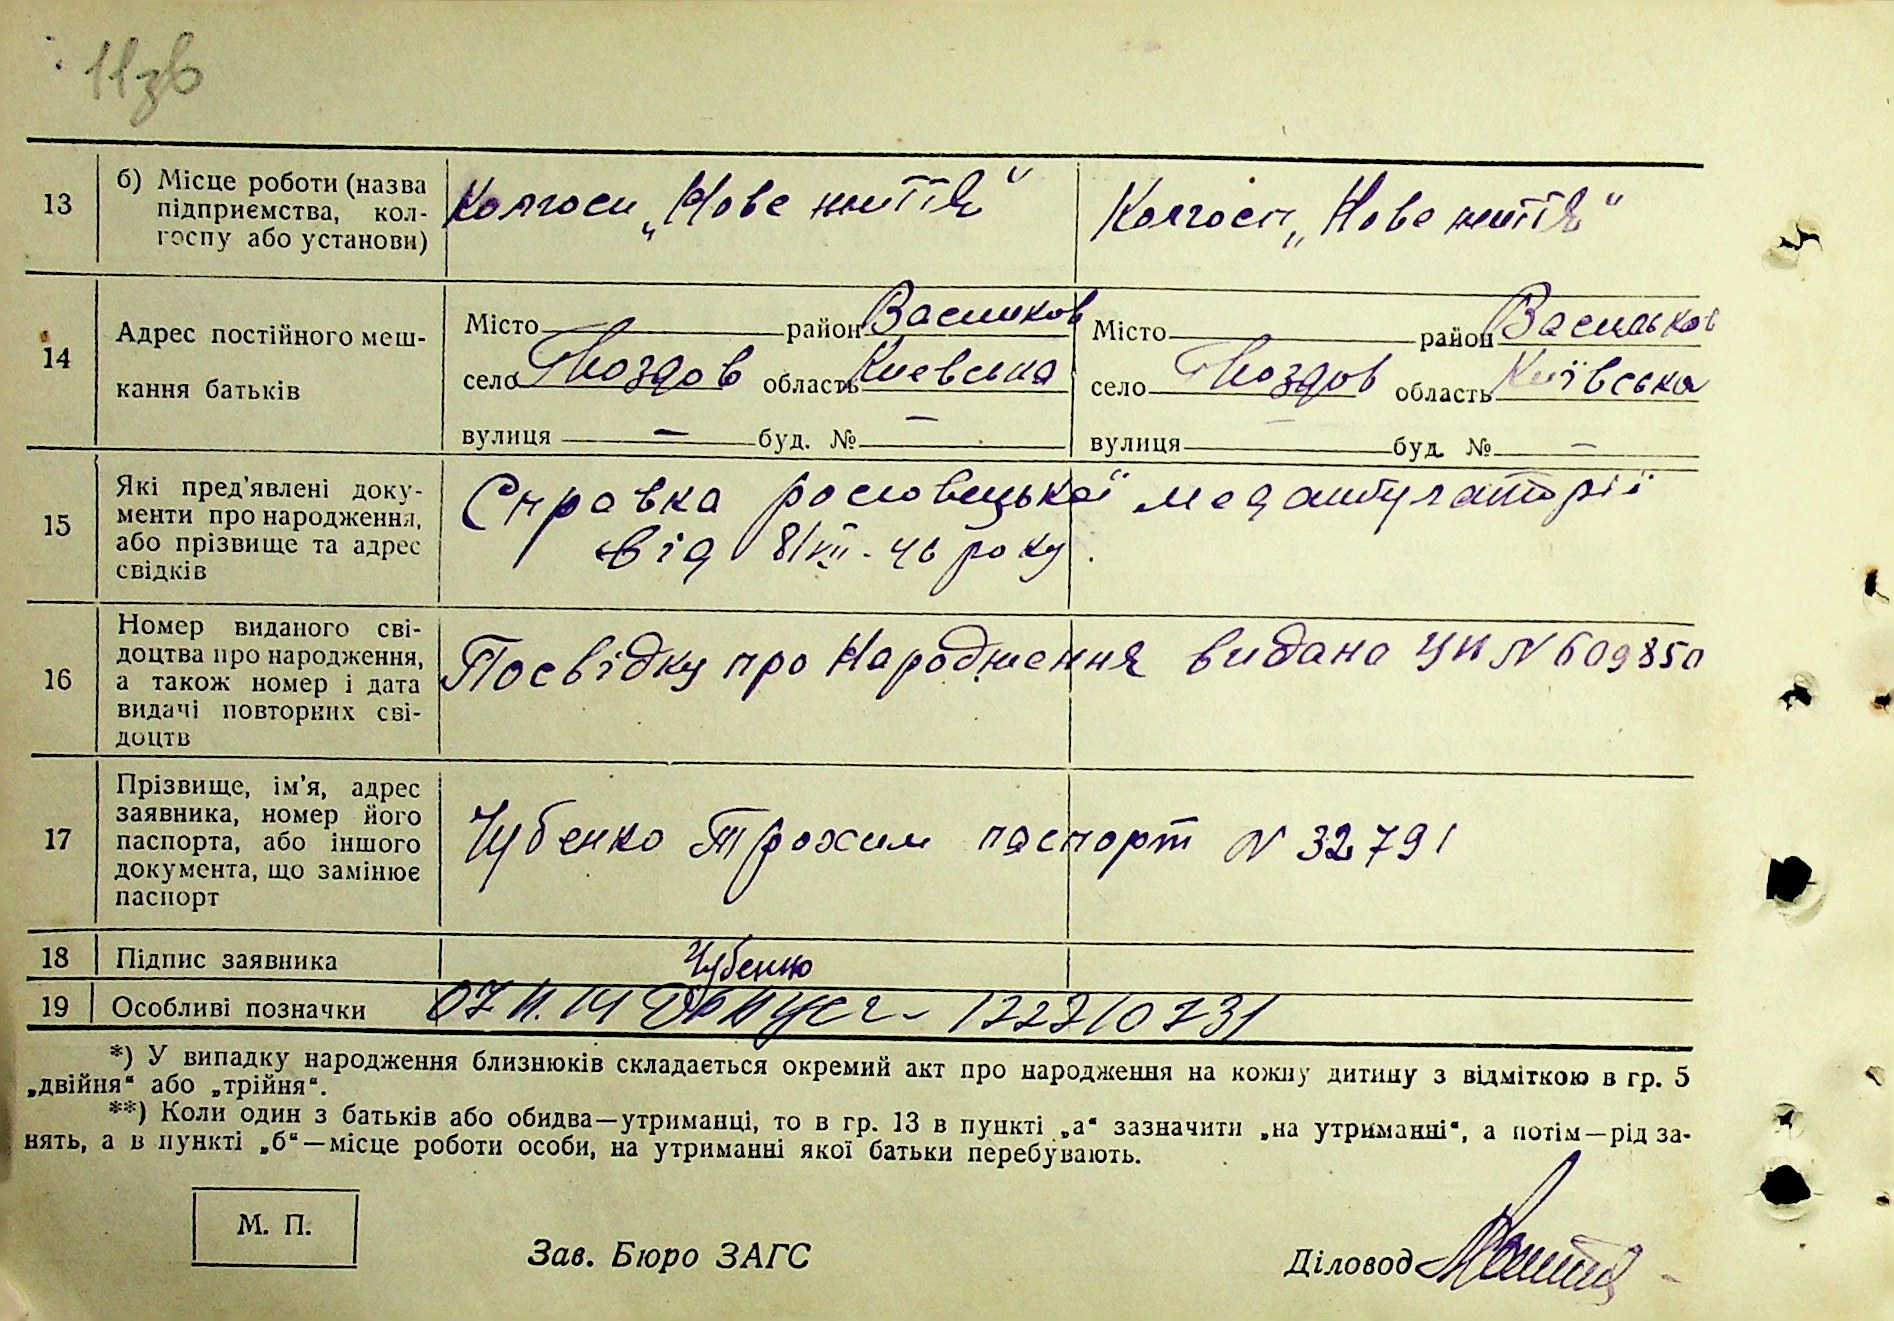 11зв
13 б) Місце роботи (назва Колгосп „Нове життя“ Колгосп „Нове життя“
підприємства, кол-
госпу або установи)
Місто район Васильков Місто район Васильков
14 Адрес постійного меш-
село Гвоздов область Киевська село Гвоздов область Київська
кання батьків
вулиця — буд. № — вулиця — буд. № —
15 Які пред’явлені доку- Справка рословецької медамбулаторії
менти про народження,
або прізвище та адрес від 8/VIII-46 року.
свідків
Номер виданого сві-
доцтва про народження,
16 а також номер і дата Посвідку про Народження видана ЦИ № 609850
видачі повторних сві-
доцтв
Прізвище, ім’я, адрес
заявника, номер його
17 паспорта, або іншого Чубенко Трохим паспорт № 32791
документа, що замінює
паспорт
18 Підпис заявника Чубенко
19 Особливі позначки 1727210731
*) У випадку народження близнюків складається окремий акт про народження на кожну дитину з відміткою в гр. 5
„двійня“ або „трійня“.
**) Коли один з батьків або обидва—утриманці, то в гр. 13 в пункті „а“ зазначити „на утриманні“, а потім—рід за-
нять, а в пункті „б“—місце роботи особи, на утриманні якої батьки перебувають.
М. П.
Зав. Бюро ЗАГС Діловод